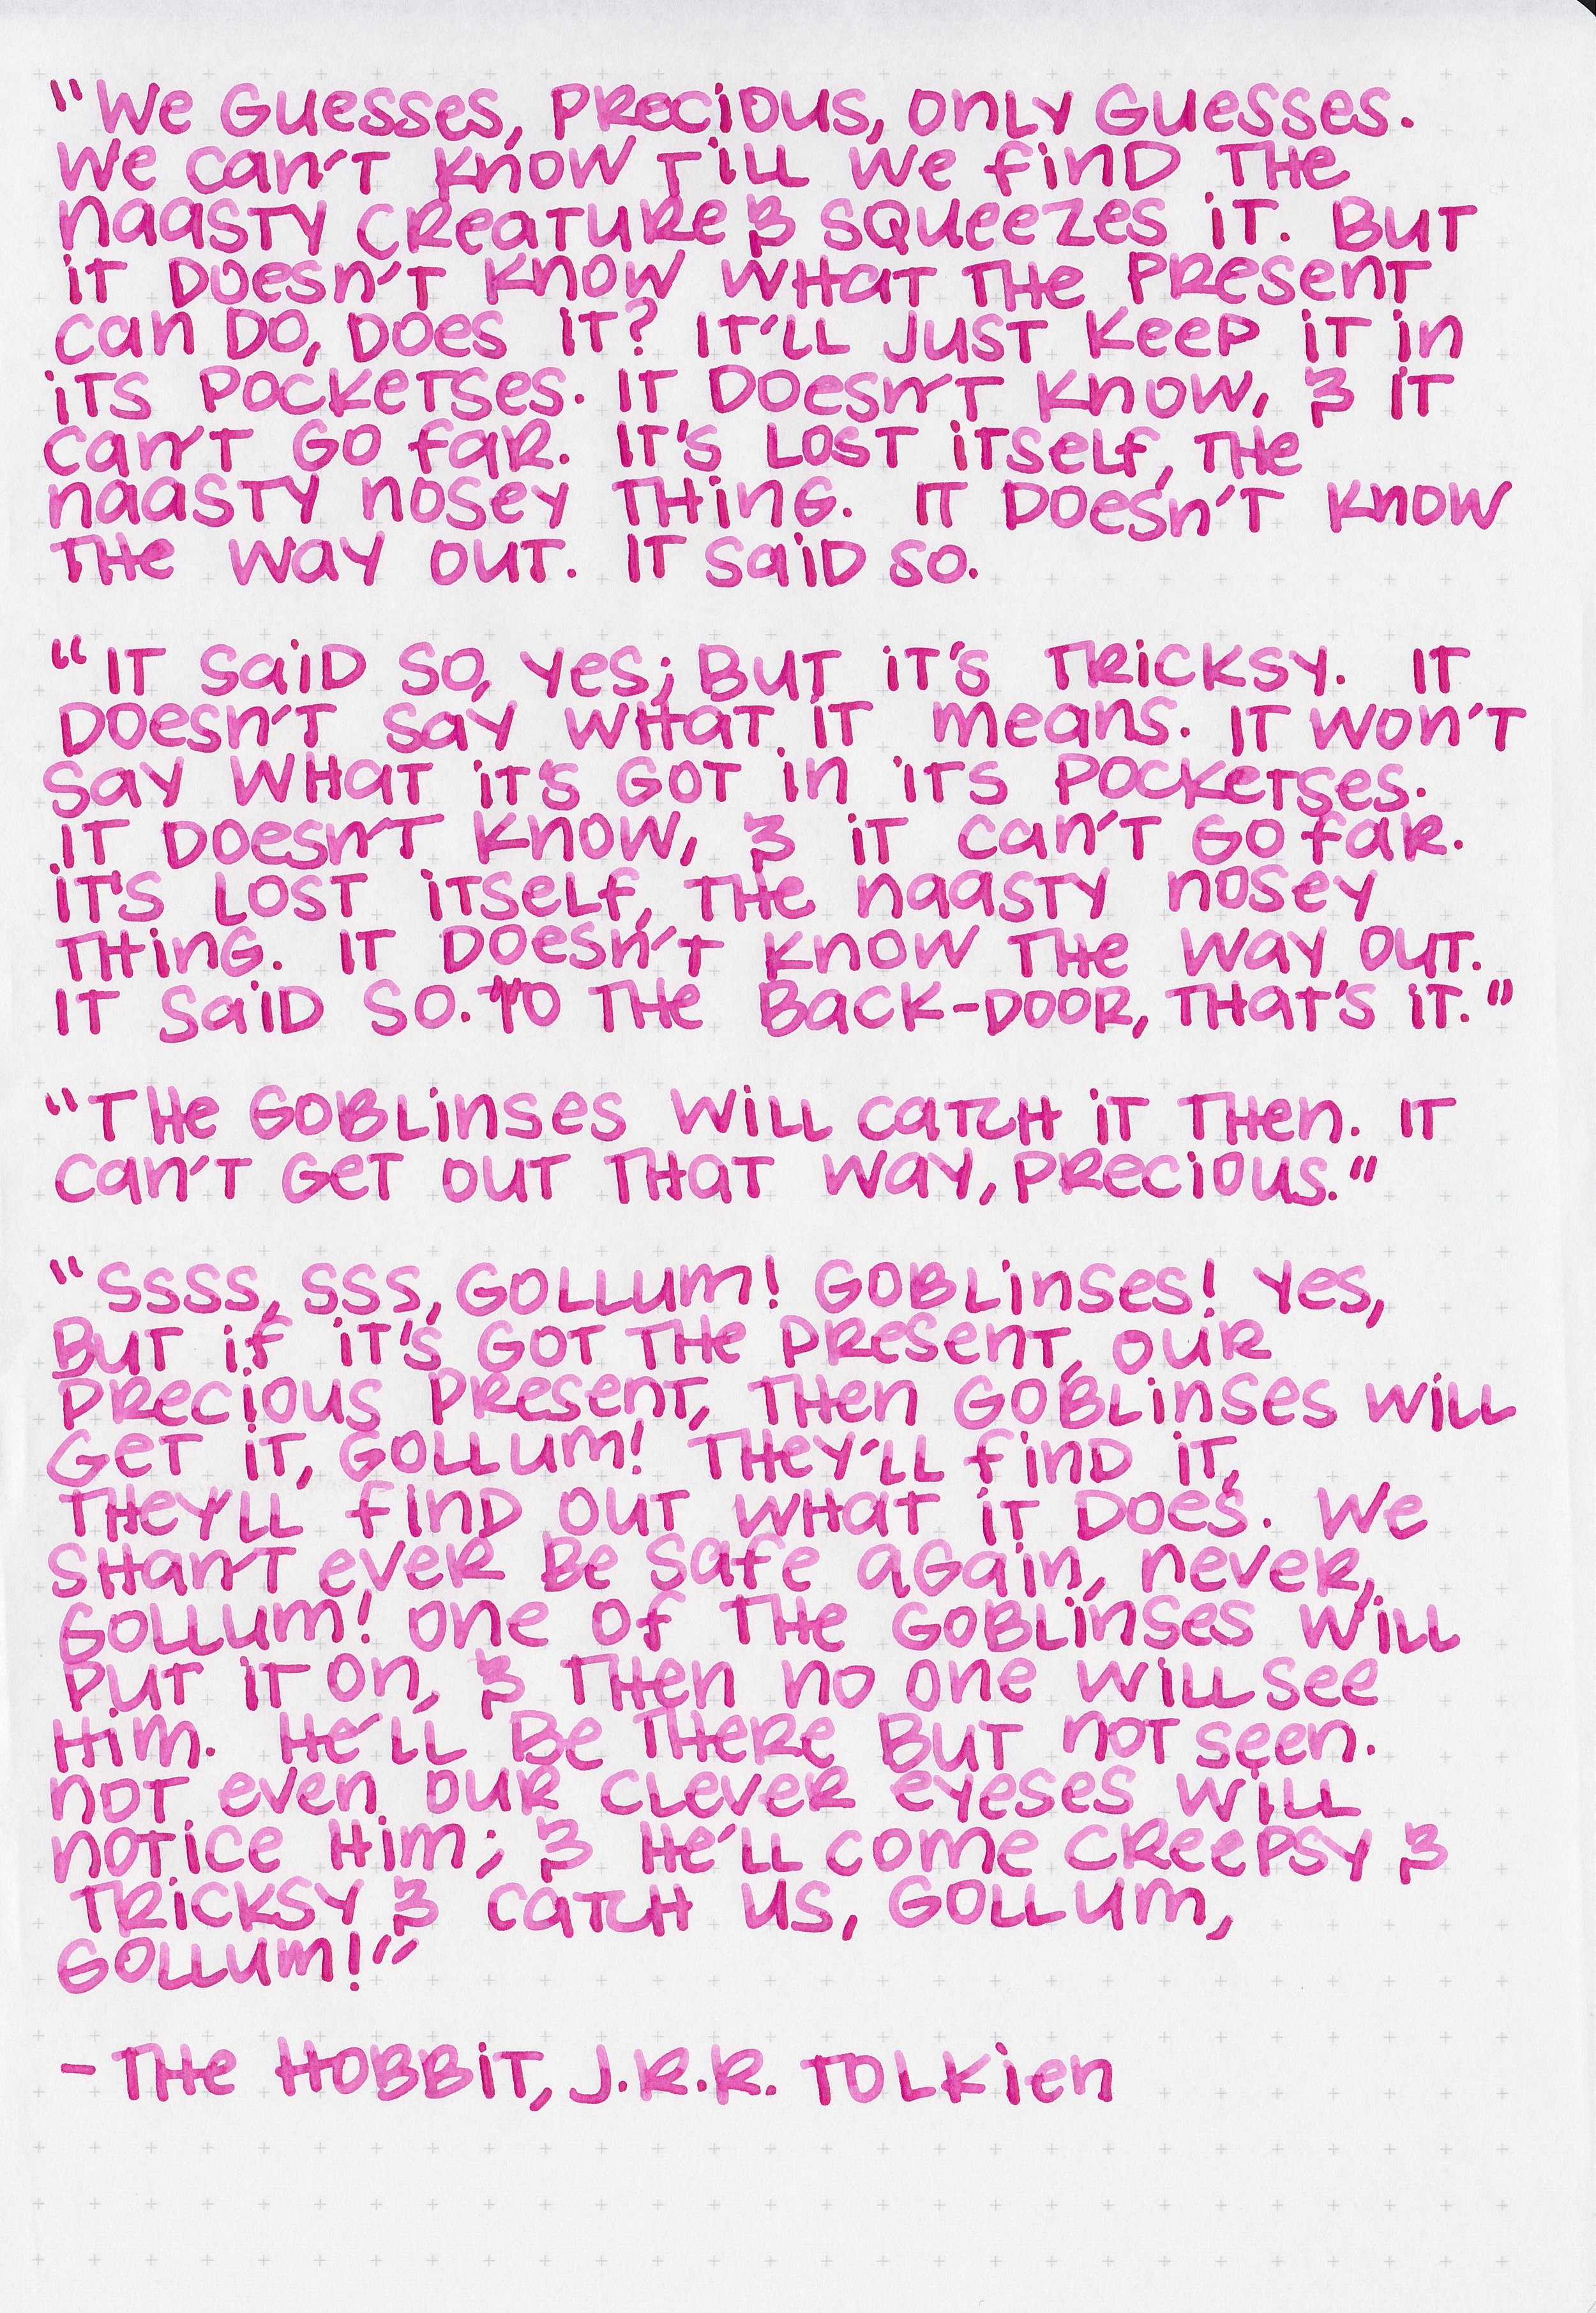 "We guesses, precious, only guesses.
We can't know till we find the
naasty creature & squeezes it. But
it doesn't know what the present
can do, does it? It'll just keep it in
its pocketses. It doesn't know, & it
can't go far. It's lost itself, the
naasty nosey thing. It doesn't know
the way out. It said so.
"It said so, yes; but it's tricksy. It
doesn't say what it means. It won't
say what it's got in its pocketses.
It doesn't know, & it can't go far.
It's lost itself, the naasty nosey
thing. It doesn't know the way out.
It said so. To the back-door, that's it."
"The goblinses will catch it then. It
can't get out that way, precious."
"Ssss, sss, gollum! Goblinses! Yes,
but if it's got the present, our
precious present, then goblinses will
get it, gollum! They'll find it,
they'll find out what it does. We
shan't ever be safe again, never,
gollum! One of the goblinses will
put it on, & then no one will see
him. He'll be there but not seen.
Not even our clever eyeses will
notice him; & he'll come creepsy &
tricksy & catch us, gollum,
gollum!"
- The Hobbit, J.R.R. Tolkien